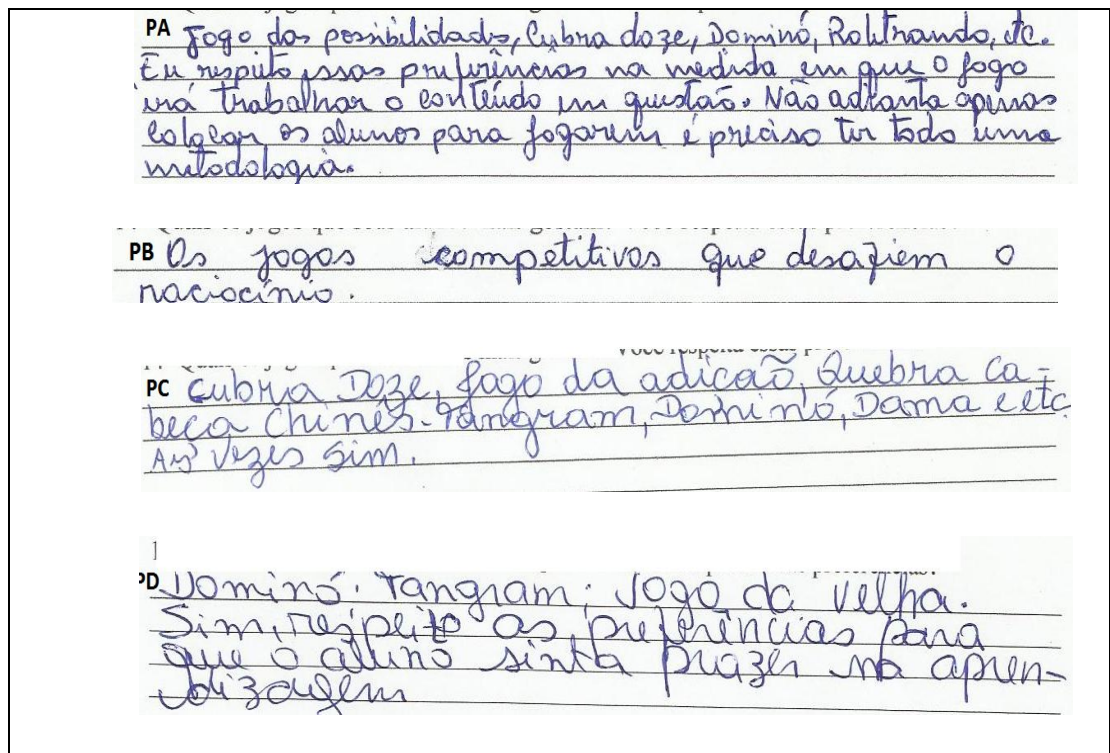 PA Jogo das possibilidades, Cubra doze, Dominó, Roletrando, etc.
Eu respeito essas preferências na medida em que o jogo
irá trabalhar o conteúdo em questão. Não adianta apenas
colocar os alunos para jogarem é preciso ter todo uma
metodologia.
PB Os jogos competitivos que desafiem o
raciocínio.
PC Cubra Doze, Jogo da adicaõ, Quebra Ca-
beça Chinês-Tangram, Dominó, Dama e etc
As vezes sim.
PD Dominó. Tangram; Jogo da velha.
Sim, respeito as preferências para
que o aluno sinta prazer na apren-
dizagem